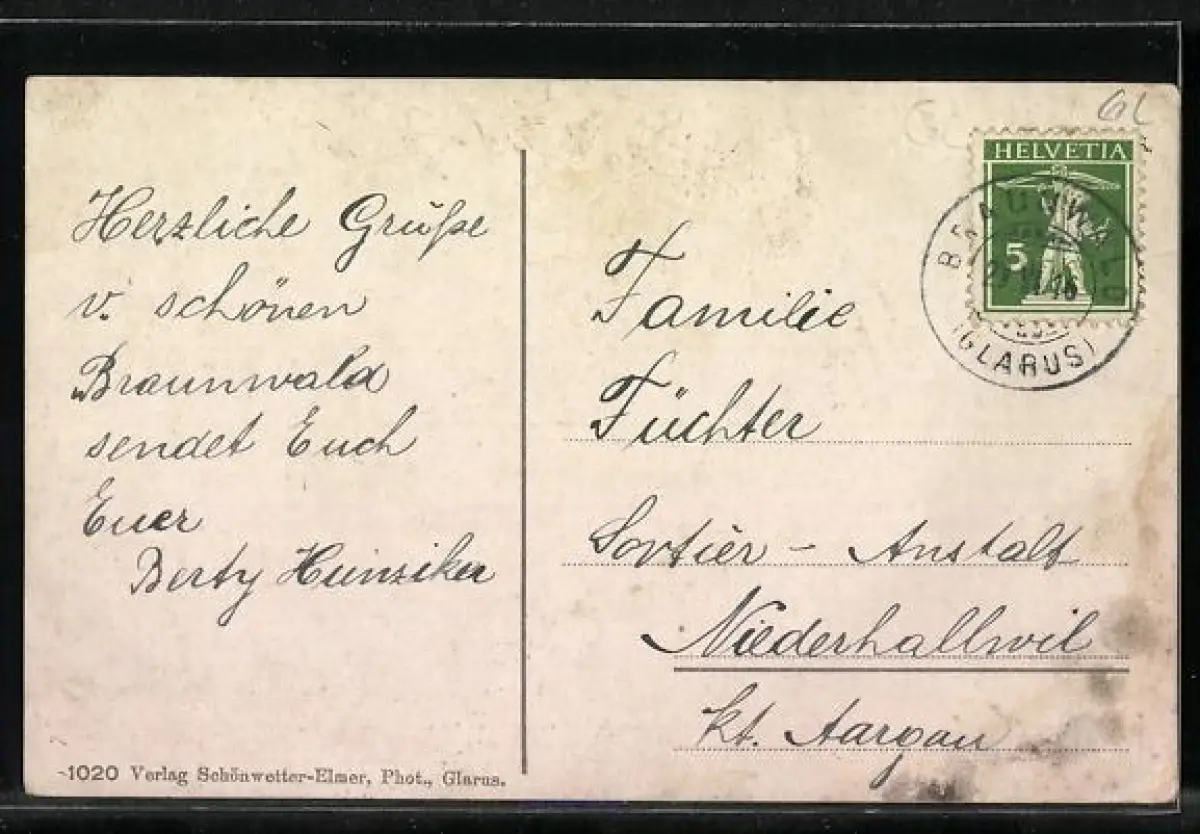 Herzliche Grüße
v. schönen
Braunwald
sendet Euch
Euer
Berty Hunziker
-1020 Verlag Schönwetter-Elmer, Phot., Glarus.
GL
HELVETIA
5
BRAUNWALD
(GLARUS)
Familie
Füchter
Sortier - Anstalt
Niederhallwil
kt. Aargau